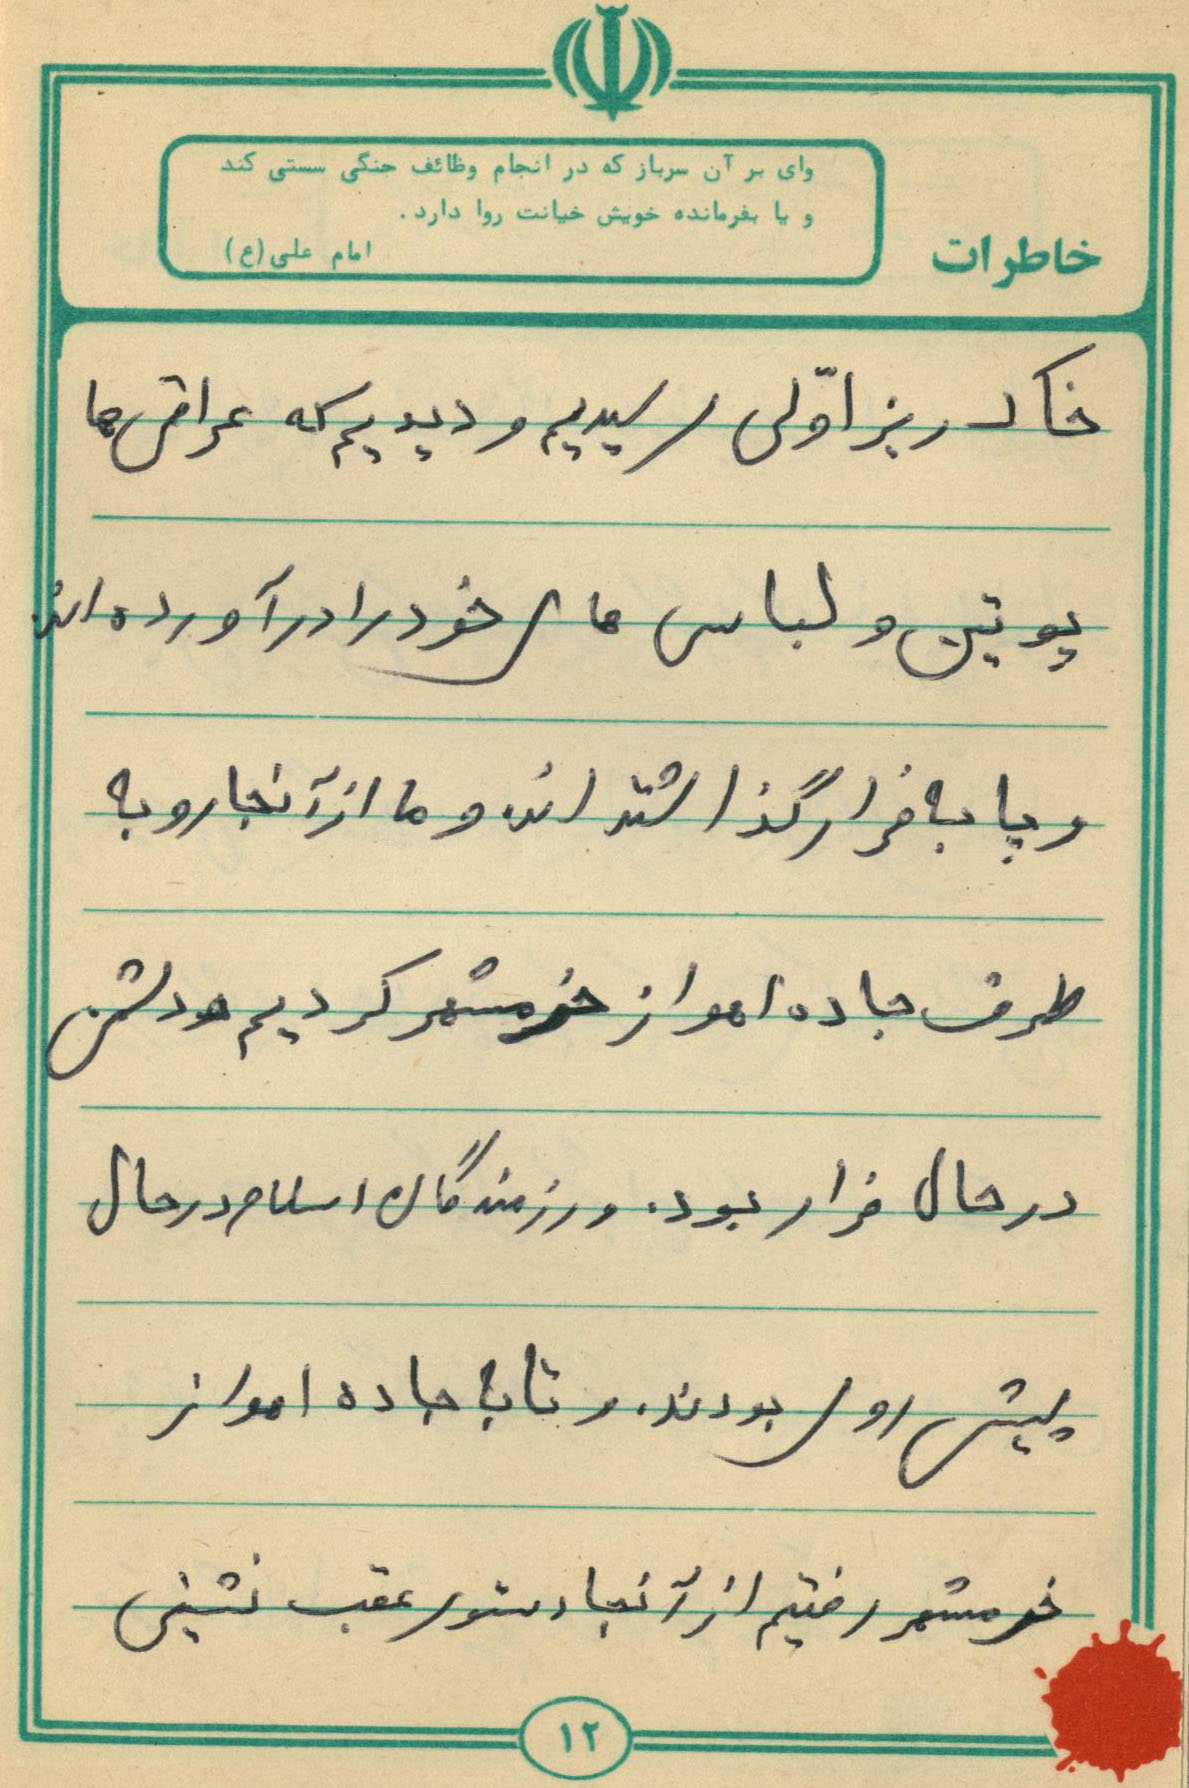 وای بر آن سرباز که در انجام وظائف جنگی سستی کند
و یا بفرمانده خویش خیانت روا دارد.
امام علی (ع)
خاطرات
خاک ریز اوّلی رسیدیم و دیدیم که عراقی ها
پوتین و لباس های خود را در آورده اند.
و پا به فرار گذاشته اند و ما از آنجا رو به
طرف جاده اهواز خرمشهر کردیم دشمن
در حال فرار بود. و رزمندگان اسلام در حال
پیش روی بودند. و تا به جاده اهواز
خرمشهر رفتیم از آنجا دستور عقب نشینی
۱۲